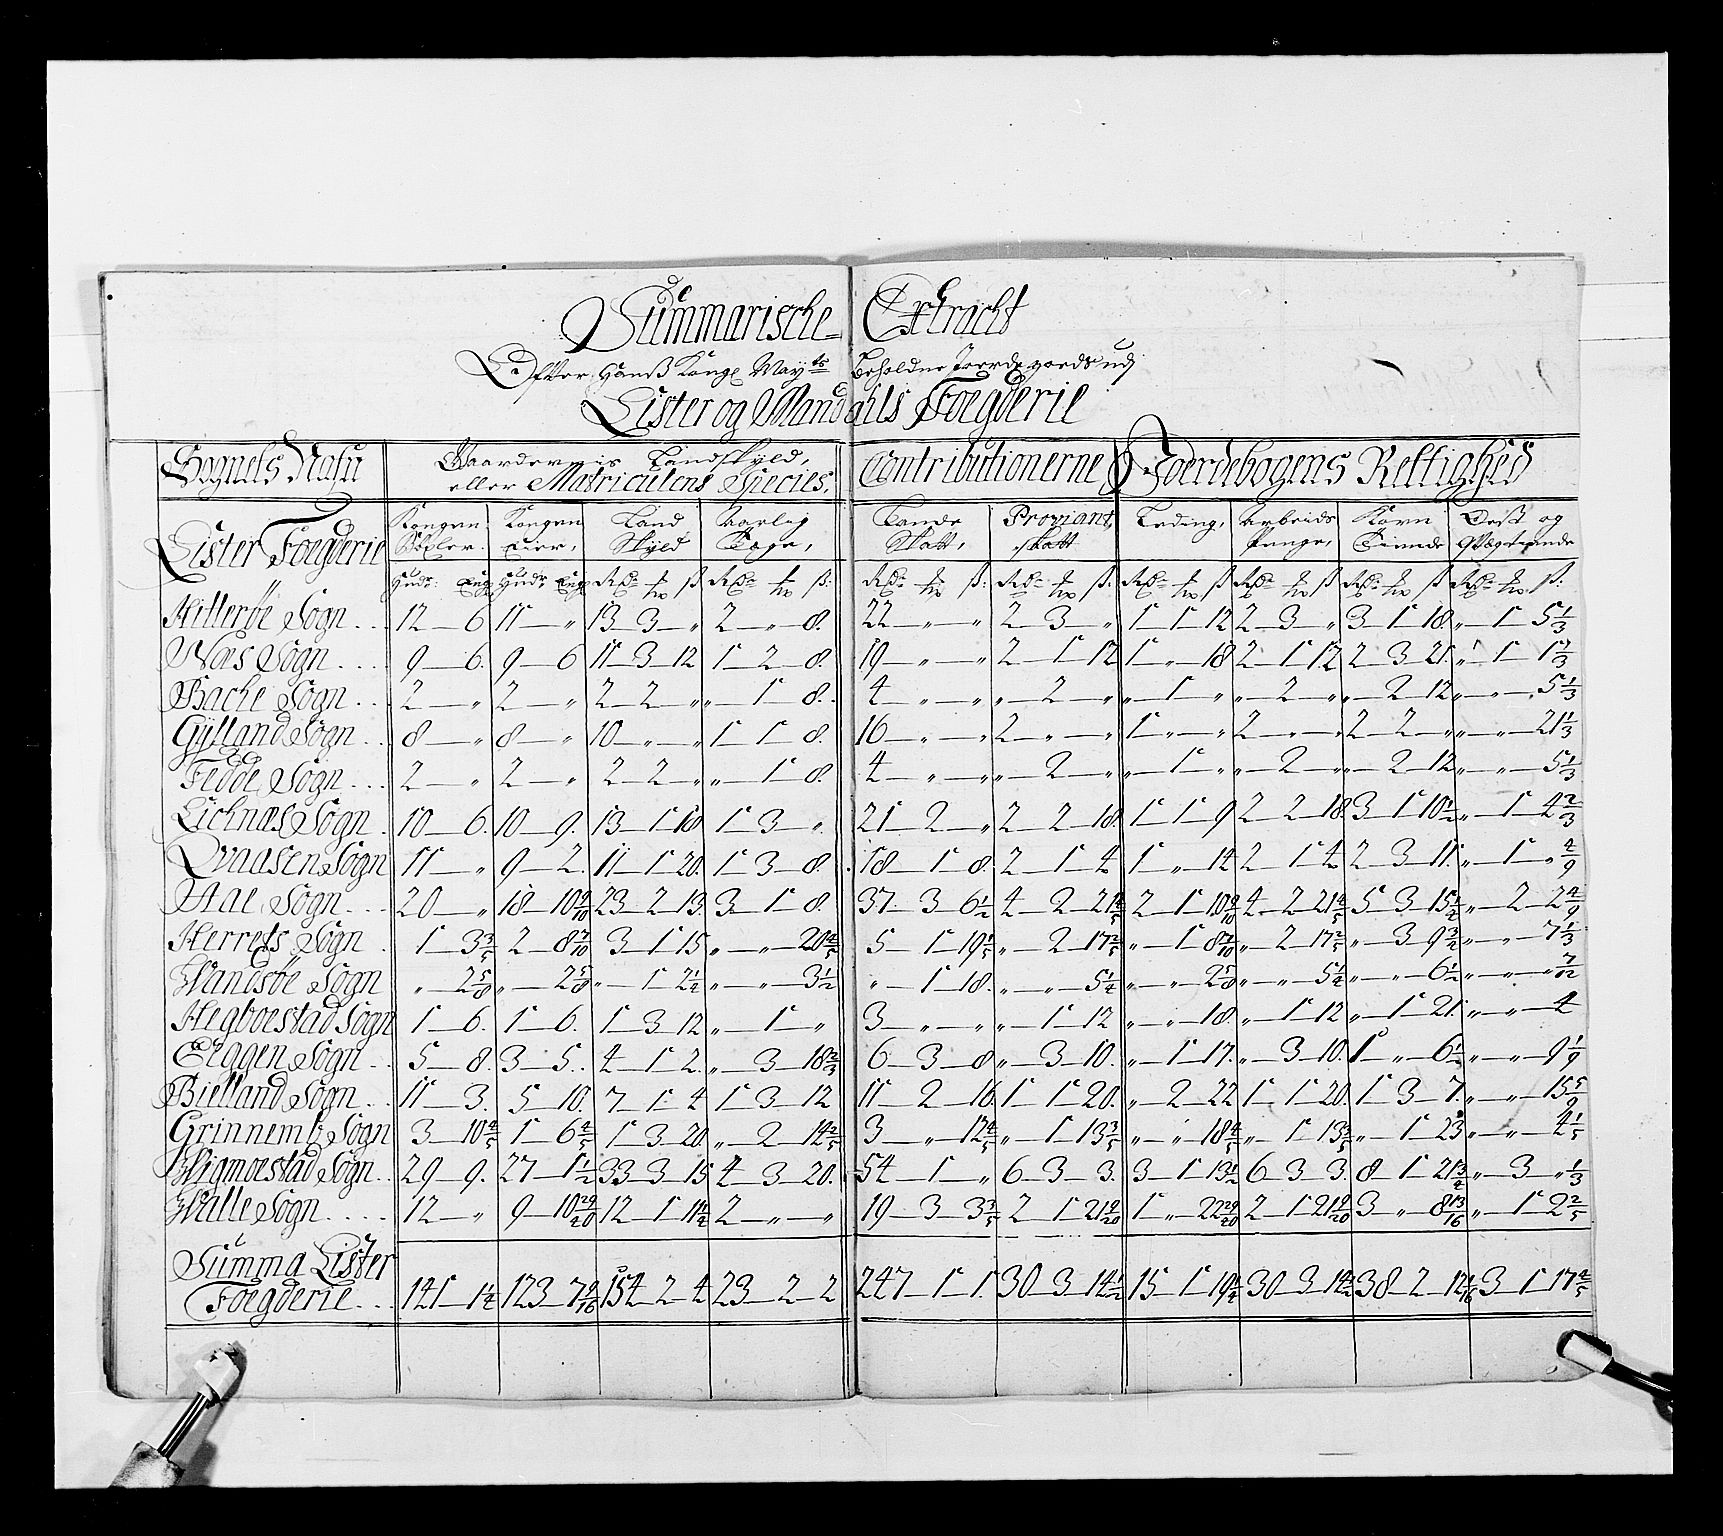 Summarische Extracht
Effter Hanß Kongl May:ts Beholdne Joerdegoeds udj
Lister og Mandahls Foegderie
Sognets Nafn Gaardernis Landskyld, Contributionerne Joerdebogens Rettighed
eller Matriculens Species,
Lister Foegderie Kongen Kongen Eier, Land Skyld Aarlig Toge, Lande Skatt, Proviant skatt Leding, Arbeids Penge, Korn Tiende Oest og Qvægtiende
Hitterøe Sogn 12 — 6 11 — „ 13 3 — „ 2 — „ — 8. 22 — „ — „ 2 — 3 — „ 1 1 12 2 — 3 — „ 3 1 18 „ — 1 — 5 1/3
Næs Sogn 9 — 6 9 — 6 11 3 12 1 — 2 — 8. 19 — „ — „ 2 — 1 12 1 — „ — 18 2 1 12 2 — 3 — 21 „ — 1 — 1 1/3
Bache Sogn 2 — „ 2 — „ 2 — 2 — „ „ — 1 — 8. 4 — „ — „ „ — 2 — „ „ — 1 — „ „ — 2 — „ „ — 2 — 12 „ — „ — 5 1/3
Gylland Sogn 8 — „ 8 — „ 10 — „ — „ 1 — 1 — 8. 16 — „ — „ 2 — „ — „ 1 — „ — „ 2 — „ — „ 2 — 2 — „ „ — „ — 21 1/3
Fedde Sogn 2 — „ 2 — „ 2 — 2 — „ „ — 1 — 8. 4 — „ — „ „ — 2 — „ „ — 1 — „ „ — 2 — „ „ — 2 — 12 „ — „ — 5 1/3
Lichnæs Sogn 10 — 6. 10 — 9. 13 — 1 18 1 — 3 — „ 21 — 2 — „ 2 — 2 — 18. 1 1 9 2 — 2 — 18 3 1 10 1/2 „ — 1 — 4 2/3
Qvaasen Sogn 11 — „ 9 — 2. 11 — 1 20. 1 — 3 — 8. 18 — 1 — 8. 2 — 1 — 4 1 — „ — 14 2 — 1 4 2 — 3 — 11. „ — 1 — „ 4/9
Aae Sogn 20 — „ 18 — 10 9/10 23 — 2 — 13. 3 — 1 — 8. 37. — 3 — 6 1/2 4 — 2 — 21 4/5 2 — 1 — 10 9/10 4 — 2 21 4/5 5 — 3 — 15 1/4 „ — 2 — 2 4/9
Herrets Sogn 1 — 3 3/5 2 — 8 7/10 3 — 1 15 „ — „ — 20 4/5 5 — 1 19 1/5 „ — 2 — 17 2/5 „ — 1 8 7/10 „ — 2 — 17 2/5 „ — 3 — 9 3/4 „ — „ — 7 1/3
Wandsøe Sogn „ — 2 5/8 „ — 2 5/8 „ — 1 2 1/4 „ — „ — 3 1/2 „ — 1 — 18. „ — „ — 5 1/4 „ — „ — 2 5/8 „ — „ — 5 1/4 „ — „ — 6 1/2 „ — „ — „ 7/12
Hegboestad Sogn 1 — 6. 1 — 6. 1 — 3 12 „ — 1 — „ 3 — „ — „ „ — 1 — 12 „ — „ — 18. „ — 1 12 „ — 1 21. „ — „ — 4
Eeggen Sogn 5 — 8. 3 — 5. 4 — 1 2. „ — 3 — 18 2/3 6 — 3 — 8 „ — 3 — 10. „ — 1 17. „ — 3 — 10. 1 — „ — 6 1/2 „ — „ — 9 1/9
Bielland Sogn 11 — 3. 5 — 10. 7 — 1 — 4 1 — 3 — 12 11 — 2 — 16. 1 — 1 20. „ — 2 — 22 1 — 1 20. 1 — 3 — 7. „ — „ — 15 5/9
Grinnemb Sogn 3 — 10 4/5 1 — 6 4/5 1 — 3 20. „ — 2 — 14 2/5 3 — „ — 12 4/5 „ — 1 13 3/5 „ — „ — 18 4/5 „ — 1 13 3/5 „ — 1 — 23 „ — „ — 4 1/5
Wigmoestad Sogn 29 — 9. 27 — 1 1/2 33 3 — 15 4 — 3 — 20. 54 — 1 — „ 6 — 3 — 3. 3 — 1 13 1/2 6 — 3 3. 8 — 1 21 3/4 „ — 3 — „ 1/3
Walle Sogn 12 — „ 9 — 10 29/40 12 — 1 11 1/4 2 — „ — „ 19 — 3 — 3 3/5 2 — 1 21 9/20 1 — „ — 22 29/40 2 — 1 21 9/20 3 — „ — 8 13/16 „ — 1 — 2 2/5
Summa Lister
Foegderie 141 — 1 1/4 123 — 154 — 2 — 4 23 — 2 — 2 247 — 1 — 1. 30 — 3 — 14 1/2 15 — 1 — 19 1/4 30 — 3 — 14 1/2 38 — 2 — 3 — 1 — 17 2/5